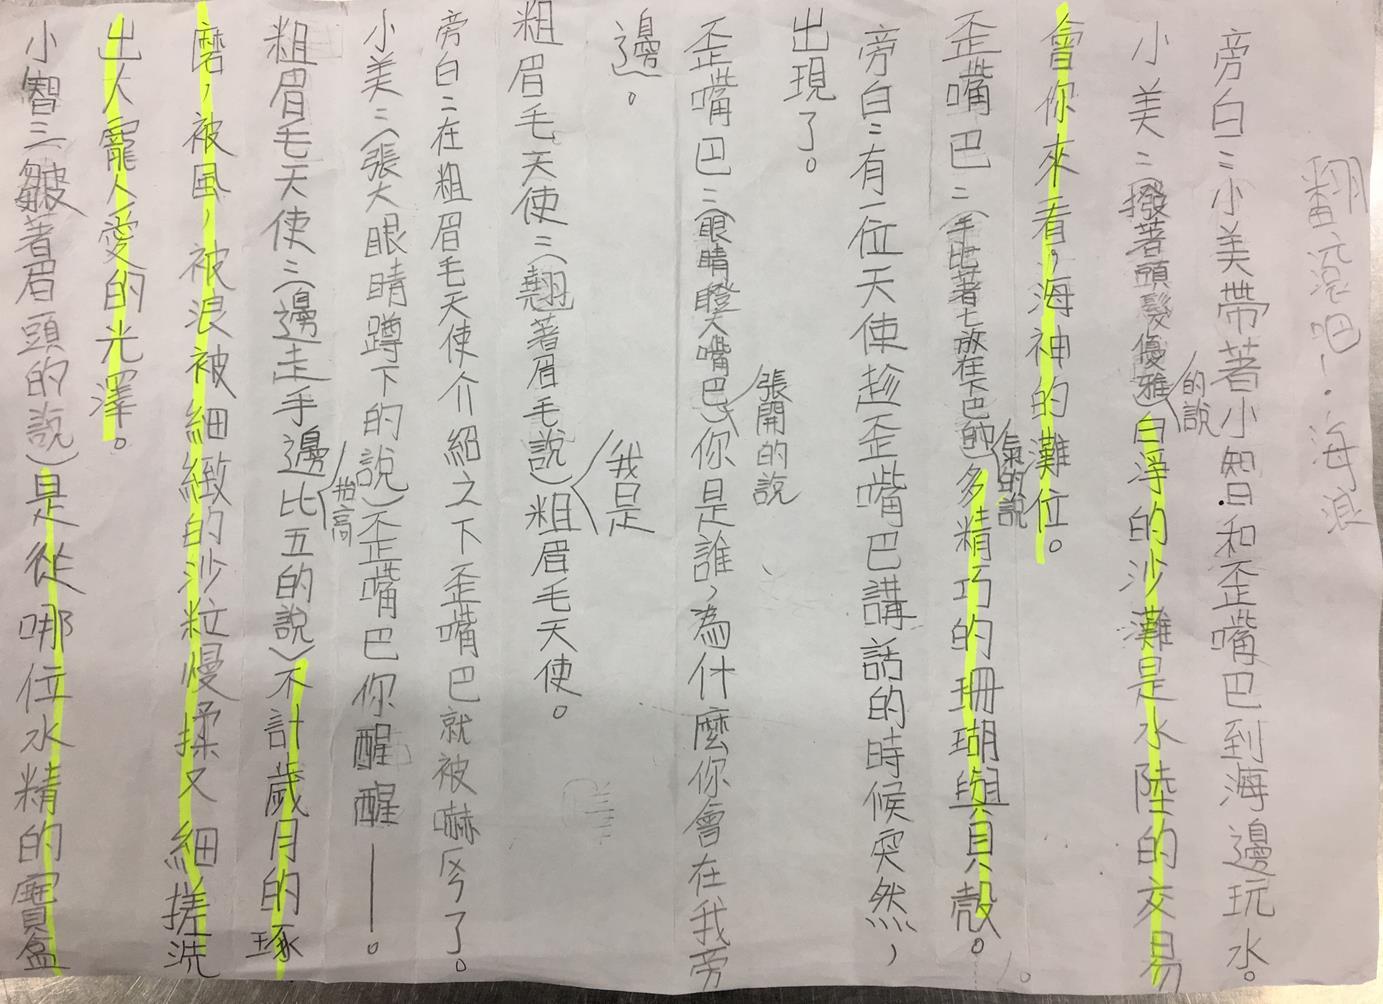 翻滾吧!海浪
旁白:小美帶著小智和歪嘴巴到海邊玩水。
小美:(撥著頭髮優雅的說)白淨的沙灘是水陸的交易
會你來看,海神的灘位。
歪嘴巴:(手比著七放在下巴的氣的說多精巧的珊瑚與貝殼。
旁白:有一位天使趁歪嘴巴講話的時候突然,
出現了。
歪嘴巴:(眼睛瞪大嘴巴張開的說)你是誰,為什麼你會在我旁
邊。
粗眉毛天使:(翹著眉毛說)我是粗眉毛天使。
旁白:在粗眉毛天使介紹之下歪嘴巴就被嚇ㄏㄡ了。
小美:(張大眼睛蹲下的說)歪嘴巴你醒醒——。
粗眉毛天使:邊走手邊抬高比五的說)不計歲月的琢
磨,被風,被浪被細緻的沙粒慢揉又細搓洗
出人寵人愛的光澤。
小智:皺著眉頭的說)是從哪位水精的寶盒